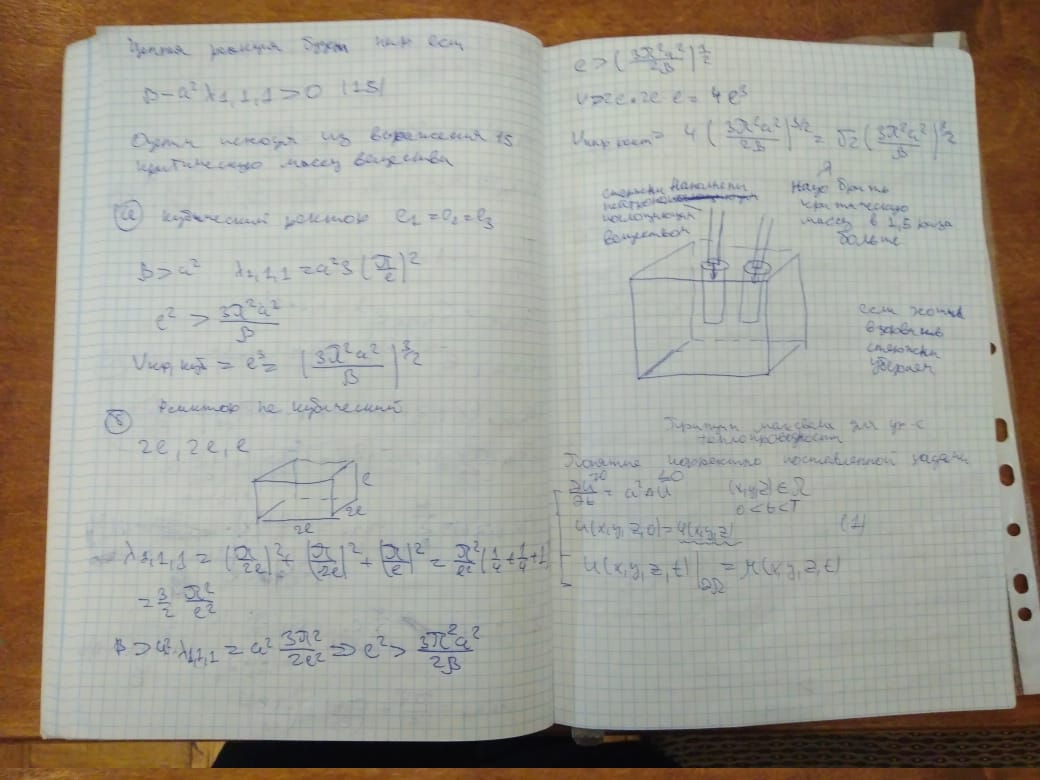 Цепная реакция будет
β − a² λ₁,₁,₁ > 0 (15)
исходя из выражения 15
критическую массу вещества
(а) кубический реактор ℓ₁ = ℓ₂ = ℓ₃
β > a² λ₁,₁,₁ = a² 3 (π/ℓ)²
ℓ² > 3π²a²/β
Vкр, куб = ℓ³ = (3π²a²/β)^3/2
(б) Реактор не кубический
2ℓ, 2ℓ, ℓ
ℓ
2ℓ
2ℓ
λ₁,₁,₁ = (π/2ℓ)² + (π/2ℓ)² + (π/ℓ)² = π²/ℓ² (1/4 + 1/4 + 1)
= 3/2 π²/ℓ²
β > a² λ₁,₁,₁ = a² 3π²/2ℓ² ⇒ ℓ² > 3π²a²/2β
ℓ > (3π²a²/2β)^1/2
V > 2ℓ · 2ℓ ℓ = 4ℓ³
= 4 (3π²a²/2β)^3/2 = √2 (3π²a²/β)^3/2
стержни наполнены
поглощающим
веществом
Надо брать
критическую
массу в 1,5 раза
больше
если хотим
взорвать
стержни
убираем
Принцип максимума для ур-я
теплопроводности
Понятие корректно поставленной задачи
∂u/∂t = a²Δu (x,y,z) ∈ Ω
0 < t < T
u(x,y,z,0) = φ(x,y,z) (1)
u(x,y,z,t)|∂Ω = μ(x,y,z,t)